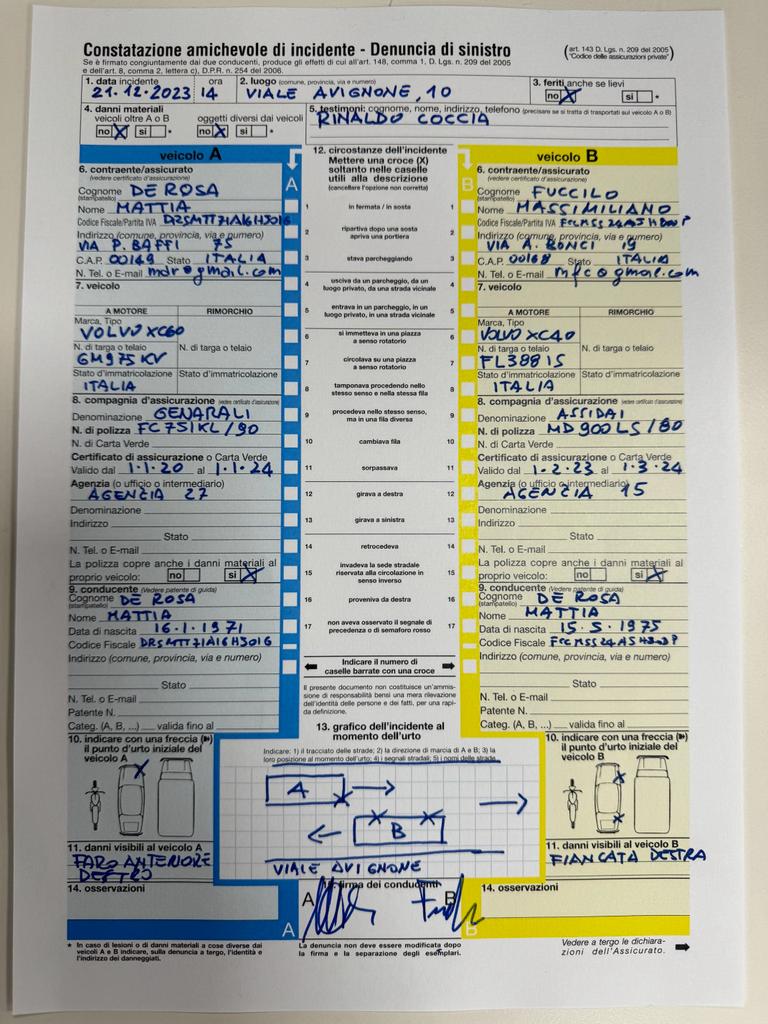 Constatazione amichevole di incidente - Denuncia di sinistro
(art. 143 D. Lgs. n. 209 del 2005 "Codice delle assicurazioni private")
Se è firmato congiuntamente dai due conducenti, produce gli effetti di cui all'art. 148, comma 1, D. Lgs. n. 209 del 2005
e dell'art. 8, comma 2, lettera c), D.P.R. n. 254 del 2006.
1. data incidente ora 2. luogo (comune, provincia, via e numero) 3. feriti anche se lievi
21.12.2023 14 VIALE AVIGNONE, 10 no X si *
4. danni materiali 5. testimoni: cognome, nome, indirizzo, telefono (precisare se si tratta di trasportati sul veicolo A o B)
veicoli oltre A o B oggetti diversi dai veicoli RINALDO COCCIA
no X si * no X si *
veicolo A
6. contraente/assicurato
(vedere certificato d'assicurazione)
Cognome DE ROSA
(stampatello)
Nome MATTIA
Codice Fiscale/Partita IVA DRSMTT71A16H301G
Indirizzo (comune, provincia, via e numero)
VIA P. BAFFI 75
C.A.P. 00149 Stato ITALIA
N. Tel. o E-mail mdr@gmail.com
7. veicolo
A MOTORE RIMORCHIO
Marca, Tipo
VOLVO XC60
N. di targa o telaio N. di targa o telaio
GM975KV
Stato d'immatricolazione Stato d'immatricolazione
ITALIA
8. compagnia d'assicurazione (vedere certificato d'assicurazione)
Denominazione GENARALI
N. di polizza FC751KL/90
N. di Carta Verde
Certificato di assicurazione o Carta Verde
Valido dal 1.1.20 al 1.1.24
Agenzia (o ufficio o intermediario)
AGENCIA 27
Denominazione
Indirizzo
Stato
N. Tel. o E-mail
La polizza copre anche i danni materiali al
proprio veicolo: no si X
9. conducente (Vedere patente di guida)
Cognome DE ROSA
(stampatello)
Nome MATTIA
Data di nascita 16.1.1971
Codice Fiscale DRSMTT71A16H301G
Indirizzo (comune, provincia, via e numero)
Stato
N. Tel. o E-mail
Patente N.
Categ. (A, B, ...) valida fino al
10. indicare con una freccia
il punto d'urto iniziale del
veicolo A
X
11. danni visibili al veicolo A
FARO ANTERIORE
DESTRO
14. osservazioni
A
12. circostanze dell'incidente
Mettere una croce (X)
soltanto nelle caselle
utili alla descrizione
(cancellare l'opzione non corretta)
1 in fermata / in sosta 1
2 ripartiva dopo una sosta 2
apriva una portiera
3 stava parcheggiando 3
4 usciva da un parcheggio, da un 4
luogo privato, da una strada vicinale
5 entrava in un parcheggio, in un 5
luogo privato, in una strada vicinale
6 si immetteva in una piazza 6
a senso rotatorio
7 circolava su una piazza 7
a senso rotatorio
8 tamponava procedendo nello 8
stesso senso e nella stessa fila
9 procedeva nello stesso senso, 9
ma in una fila diversa
10 cambiava fila 10
11 sorpassava 11
12 girava a destra 12
13 girava a sinistra 13
14 retrocedeva 14
15 invadeva la sede stradale 15
riservata alla circolazione in
senso inverso
16 proveniva da destra 16
17 non aveva osservato il segnale di 17
precedenza o di semaforo rosso
Indicare il numero di
caselle barrate con una croce
Il presente documento non costituisce un'ammissione
di responsabilità bensì una mera rilevazione
dell'identità delle persone e dei fatti, per una rapida
definizione.
13. grafico dell'incidente al
momento dell'urto
Indicare: 1) il tracciato delle strade; 2) la direzione di marcia di A e B; 3) la
loro posizione al momento dell'urto; 4) i segnali stradali; 5) i nomi delle strade
A
B
VIALE AVIGNONE
15. firma dei conducenti
A B
La denuncia non deve essere modificata dopo
la firma e la separazione degli esemplari.
B
veicolo B
6. contraente/assicurato
(vedere certificato d'assicurazione)
Cognome FUCCILO
(stampatello)
Nome MASSIMILIANO
Codice Fiscale/Partita IVA
Indirizzo (comune, provincia, via e numero)
VIA A. BONCI 19
C.A.P. 00168 Stato ITALIA
N. Tel. o E-mail mfc@gmail.com
7. veicolo
A MOTORE RIMORCHIO
Marca, Tipo
VOLVO XC40
N. di targa o telaio N. di targa o telaio
FL388IS
Stato d'immatricolazione Stato d'immatricolazione
ITALIA
8. compagnia d'assicurazione (vedere certificato d'assicurazione)
Denominazione ASSIDAI
N. di polizza MD900LS/80
N. di Carta Verde
Certificato di assicurazione o Carta Verde
Valido dal 1.2.23 al 1.3.24
Agenzia (o ufficio o intermediario)
AGENCIA 15
Denominazione
Indirizzo
Stato
N. Tel. o E-mail
La polizza copre anche i danni materiali al
proprio veicolo: no si X
9. conducente (Vedere patente di guida)
Cognome DE ROSA
(stampatello)
Nome MATTIA
Data di nascita 15.5.1975
Codice Fiscale
Indirizzo (comune, provincia, via e numero)
Stato
N. Tel. o E-mail
Patente N.
Categ. (A, B, ...) valida fino al
10. indicare con una freccia
il punto d'urto iniziale del
veicolo B
X
X
11. danni visibili al veicolo B
FIANCATA DESTRA
14. osservazioni
* In caso di lesioni o di danni materiali a cose diverse dai
veicoli A e B indicare, sulla denuncia a tergo, l'identità e
l'indirizzo dei danneggiati.
Vedere a tergo le dichiarazioni
dell'Assicurato.